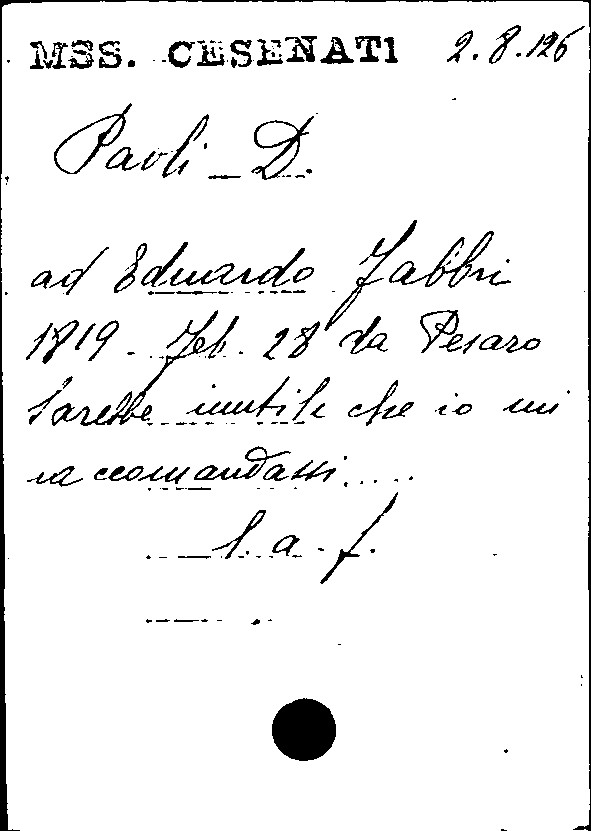 MSS. CESENATI 2.8.126
Paoli D.
ad Eduardo Fabbri
1819. Feb. 28 da Pesaro
Sarebbe inutile che io mi
raccomandassi.....
l. a. f.